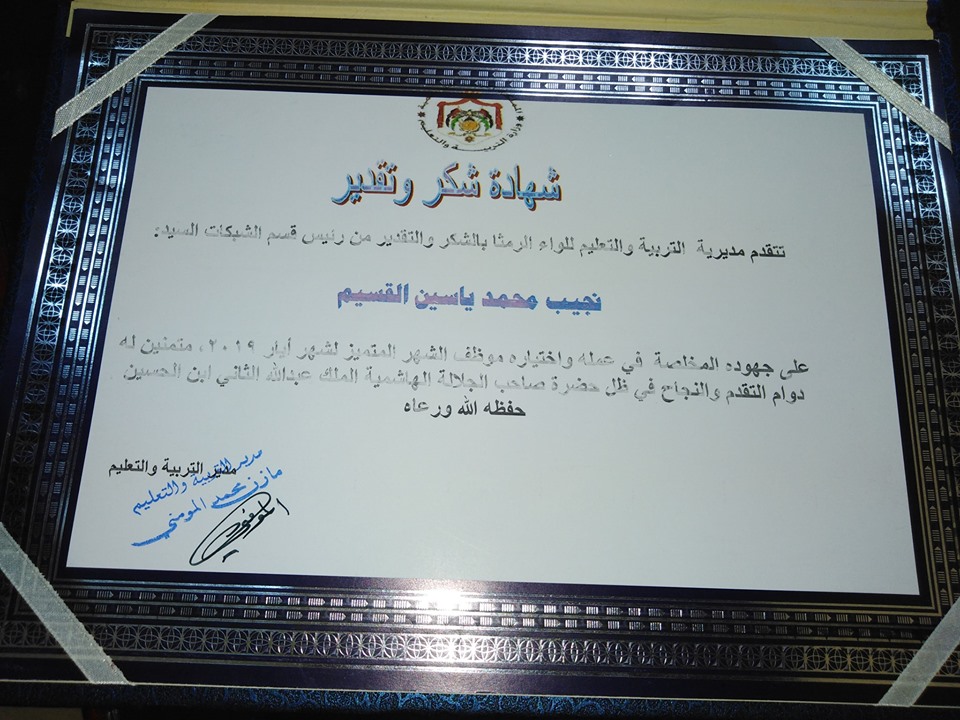 وزارة التربية والتعليم
شهادة شكر وتقدير
تتقدم مديرية التربية والتعليم للواء الرمثا بالشكر والتقدير من رئيس قسم الشبكات السيد:
نجيب محمد ياسين القسيم
على جهوده المخلصة في عمله واختياره موظف الشهر المتميز لشهر أيار ٢٠١٩، متمنين له
دوام التقدم والنجاح في ظل حضرة صاحب الجلالة الهاشمية الملك عبدالله الثاني ابن الحسين
حفظه الله ورعاه
مدير التربية والتعليم
مدير التربية والتعليم
مازن محمد المومني